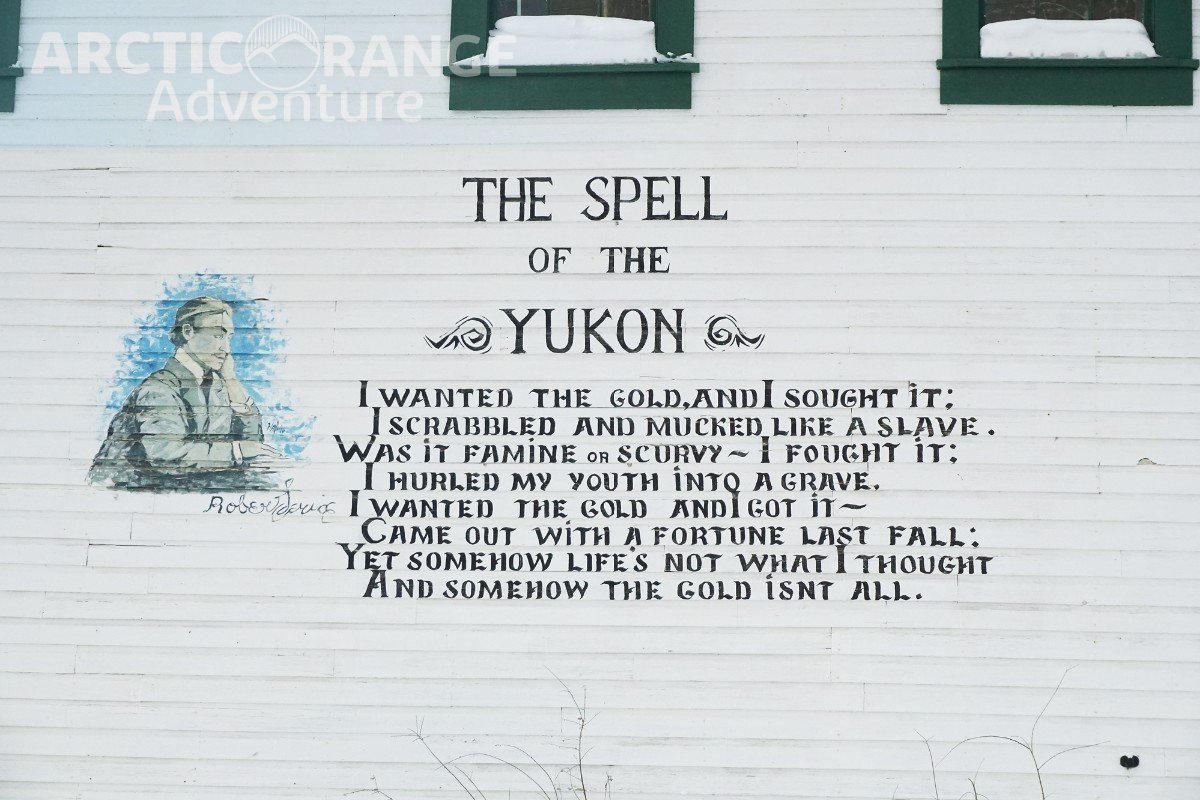 ARCTIC ORANGE
Adventure
THE SPELL
OF THE
YUKON
I WANTED THE GOLD, AND I SOUGHT iT;
I SCRABBLED AND MUCKED LIKE A SLAVE.
WAS iT FAMINE OR SCURVY ~ I FOUGHT iT;
I HURLED MY YOUTH INTO A GRAVE.
I WANTED THE GOLD AND I GOT iT ~
CAME OUT WiTH A FORTUNE LAST FALL;
YET SOMEHOW LIFE'S NOT WHAT I THOUGHT
AND SOMEHOW THE GOLD iSNT ALL.
Robert Service